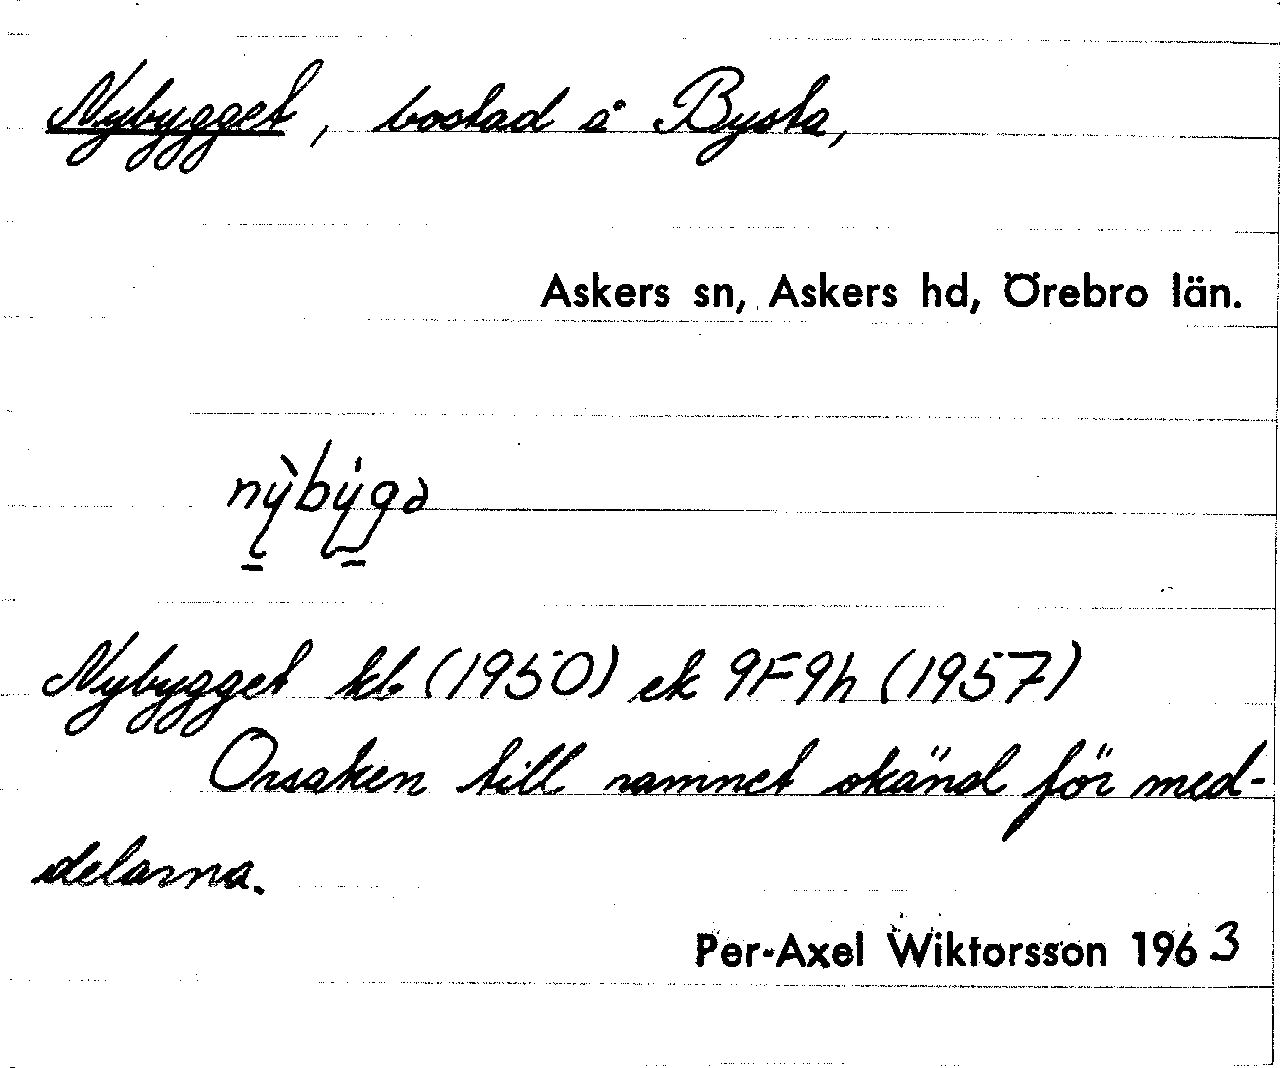 Nybygget, bostad å Bysta,
Askers sn, Askers hd, Örebro län.
nỳbýgə
Nybygget kb (1950) ek 9F9h (1957)
Orsaken till namnet okänd för med-
delarna.
Per-Axel Wiktorsson 1963